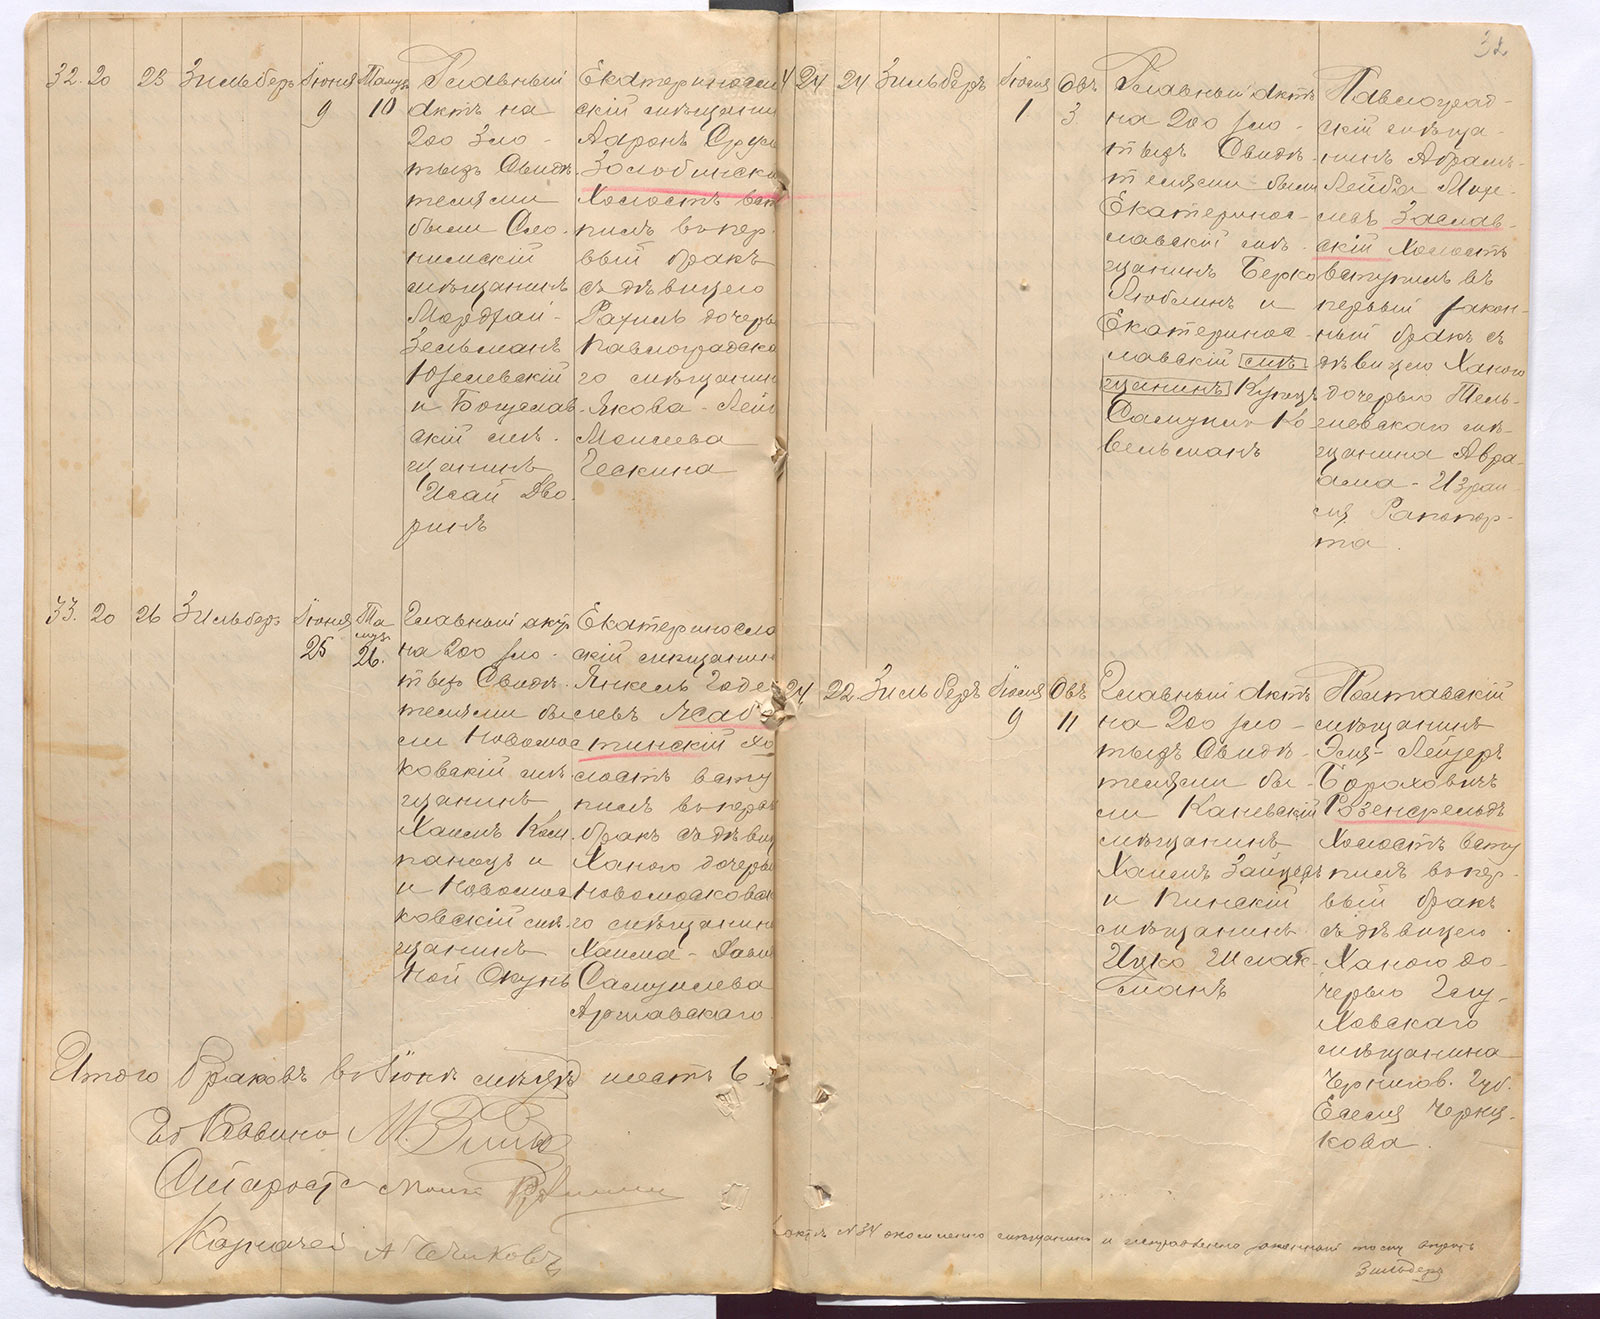 32
32. 20 23 Зильберъ Іюня 9 Тамуз 10
Главный
актъ на
200 зло-
тыхъ Свидѣ-
телями
были Сло-
нимскій
мѣщанинъ
Мордхай-
Зельманъ
Юзелевскій
и Богуслав-
скій мѣ-
щанинъ
Исай Дво-
ринъ
Екатеринослав
скій мѣщанин
Ааронъ Сруле
Золобински
Холостъ всту
пилъ въ пер-
вый бракъ
съ дѣвицею
Рахиль дочерью
Павлоградска
го мѣщанин
Якова-Лей
Моисеева
Ческина
33. 20 26 Зильберъ Іюня 25 Та муз. 26.
Главный актъ
на 200 зло-
тыхъ Свидѣ-
телями бы
ли Новомос
ковскій мѣ
щанинъ
Хаимъ Ком-
панецъ и
и Новомос
ковскій мѣ-
щанинъ
Ной Окунь
Екатеринослав
скій мѣщанин
Янкель Годе
левъ Ясаб
тинскій хо
лостъ всту
пилъ въ первый
бракъ съ дѣвиц
Ханою дочерью
Новомосковск
го мѣщанин
Хаима-Давид
Самуилева
Аршавскаго
Итого браковъ въ Іюнѣ мѣсяцѣ шесть 6.
Раввина М.
Староста
Казначей А. Чечиковъ
4 24 24 Зильберъ Іюля 1 Овъ 3
Главный актъ
на 200 зло-
тыхъ Свидѣ-
телями были
Екатеринос-
лавскій мѣ-
щанинъ Берко
Люблинъ и
Екатеринос-
лавскій мѣ-
щанинъ Купецъ
Самуилъ Ко
вельманъ
Павлоград-
скій мѣща-
нинъ Абрамъ-
Лейба Мор-
левъ Заслав-
скій Холостъ
вступилъ въ
первый закон-
ный бракъ съ
дѣвицею Ханою
дочерью Тель-
шевскаго мѣ-
щанина Авра-
ама-Израи-
ля Рапопор-
та.
24 22 Зильберъ Іюля 9 Овъ 11
Главный актъ
на 200 зло-
тыхъ Свидѣ-
телями бы-
ли Каневскій
мѣщанинъ
Хаимъ Зайцевъ
и Пинскій
мѣщанинъ
Ицко Шлак-
манъ
Полтавскій
мѣщанинъ
Эля-Лейзеръ
Бораховичъ
Розенфельдъ
Холостъ всту
пилъ въ пер-
вый бракъ
съ дѣвицею
Ханою до-
черью Глу-
ховскаго
мѣщанина
Чернигов. Губ.
Еселя Черня-
кова.
актѣ №34 мѣщанинъ и
Зильберъ